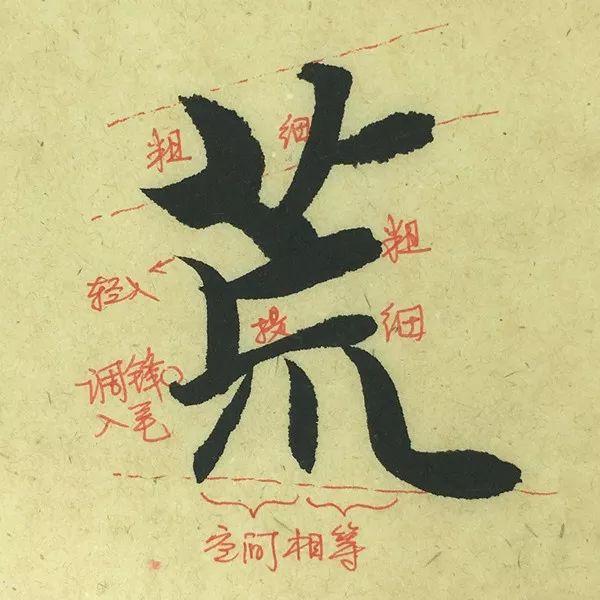 荒
粗
细
粗
轻入
提
细
调锋
入毛
空间相等